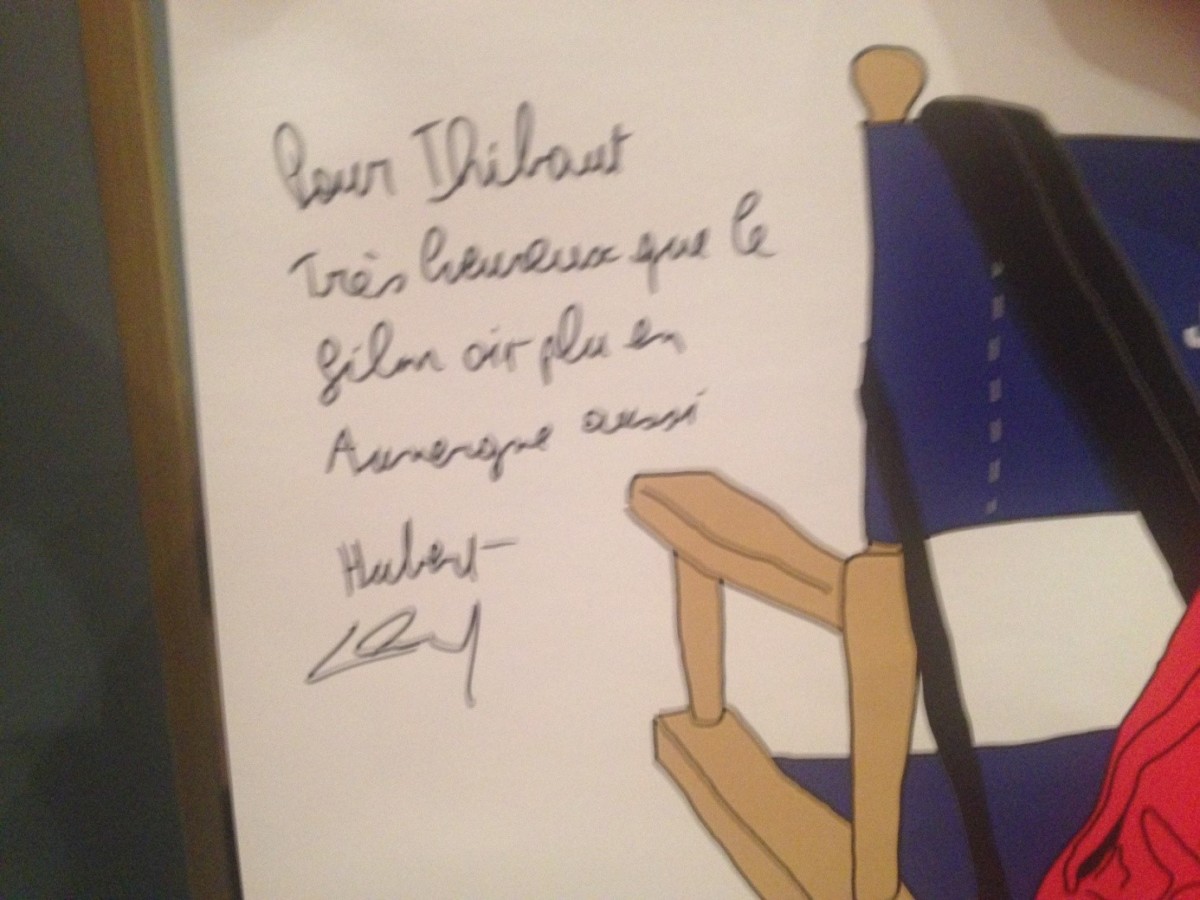 Pour Thibaut
Très heureux que le
film ait plu en
Auvergne aussi
Hubert